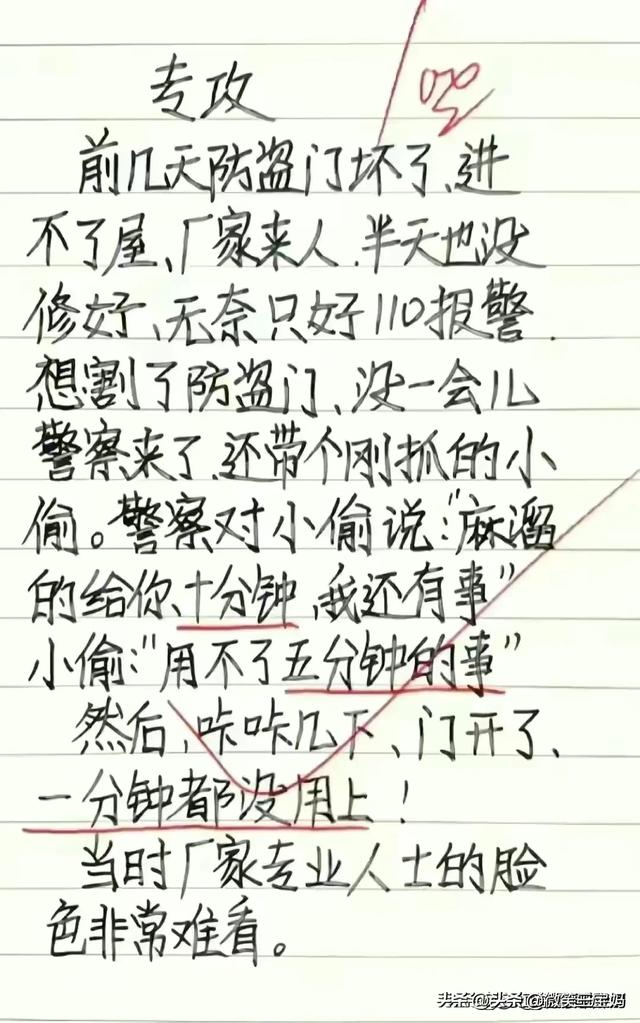 专攻
前几天防盗门坏了、进
不了屋、厂家来人、半天也没
修好、无奈只好110报警、
想割了防盗门、没一会儿
警察来了、还带个刚抓的小
偷。警察对小偷说:“麻溜
的给你、十分钟、我还有事”
小偷:“用不了五分钟的事”
然后、咔咔几下、门开了、
一分钟都没用上!
当时厂家专业人士的脸
色非常难看。